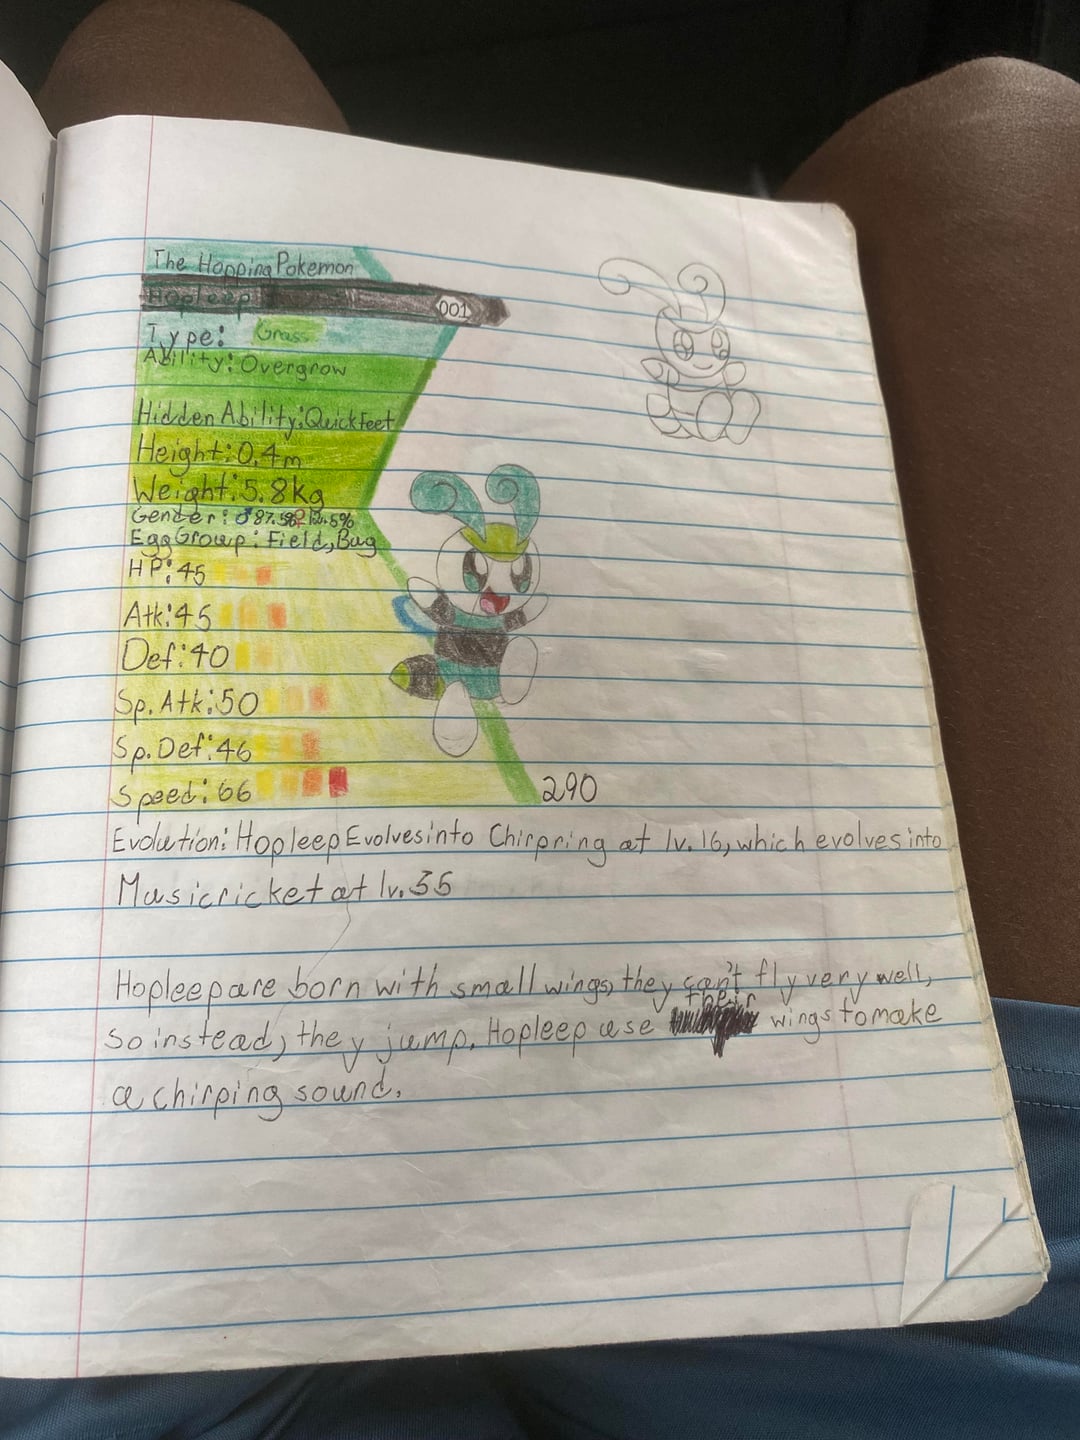 The Hopping Pokemon
Hopleep
001
Type: Grass
Ability: Overgrow
Hidden Ability: Quick feet
Height: 0.4m
Weight: 5.8kg
Gender: ♂87.5% ♀12.5%
Egg Group: Field, Bug
HP: 45
Atk: 45
Def: 40
Sp. Atk: 50
Sp. Def: 46
Speed: 66
290
Evolution: Hopleep Evolves into Chirpring at lv. 16, which evolves into
Musicricket at lv. 35
Hopleep are born with small wings, they can't fly very well,
so instead, they jump. Hopleep use their wings to make
a chirping sound.